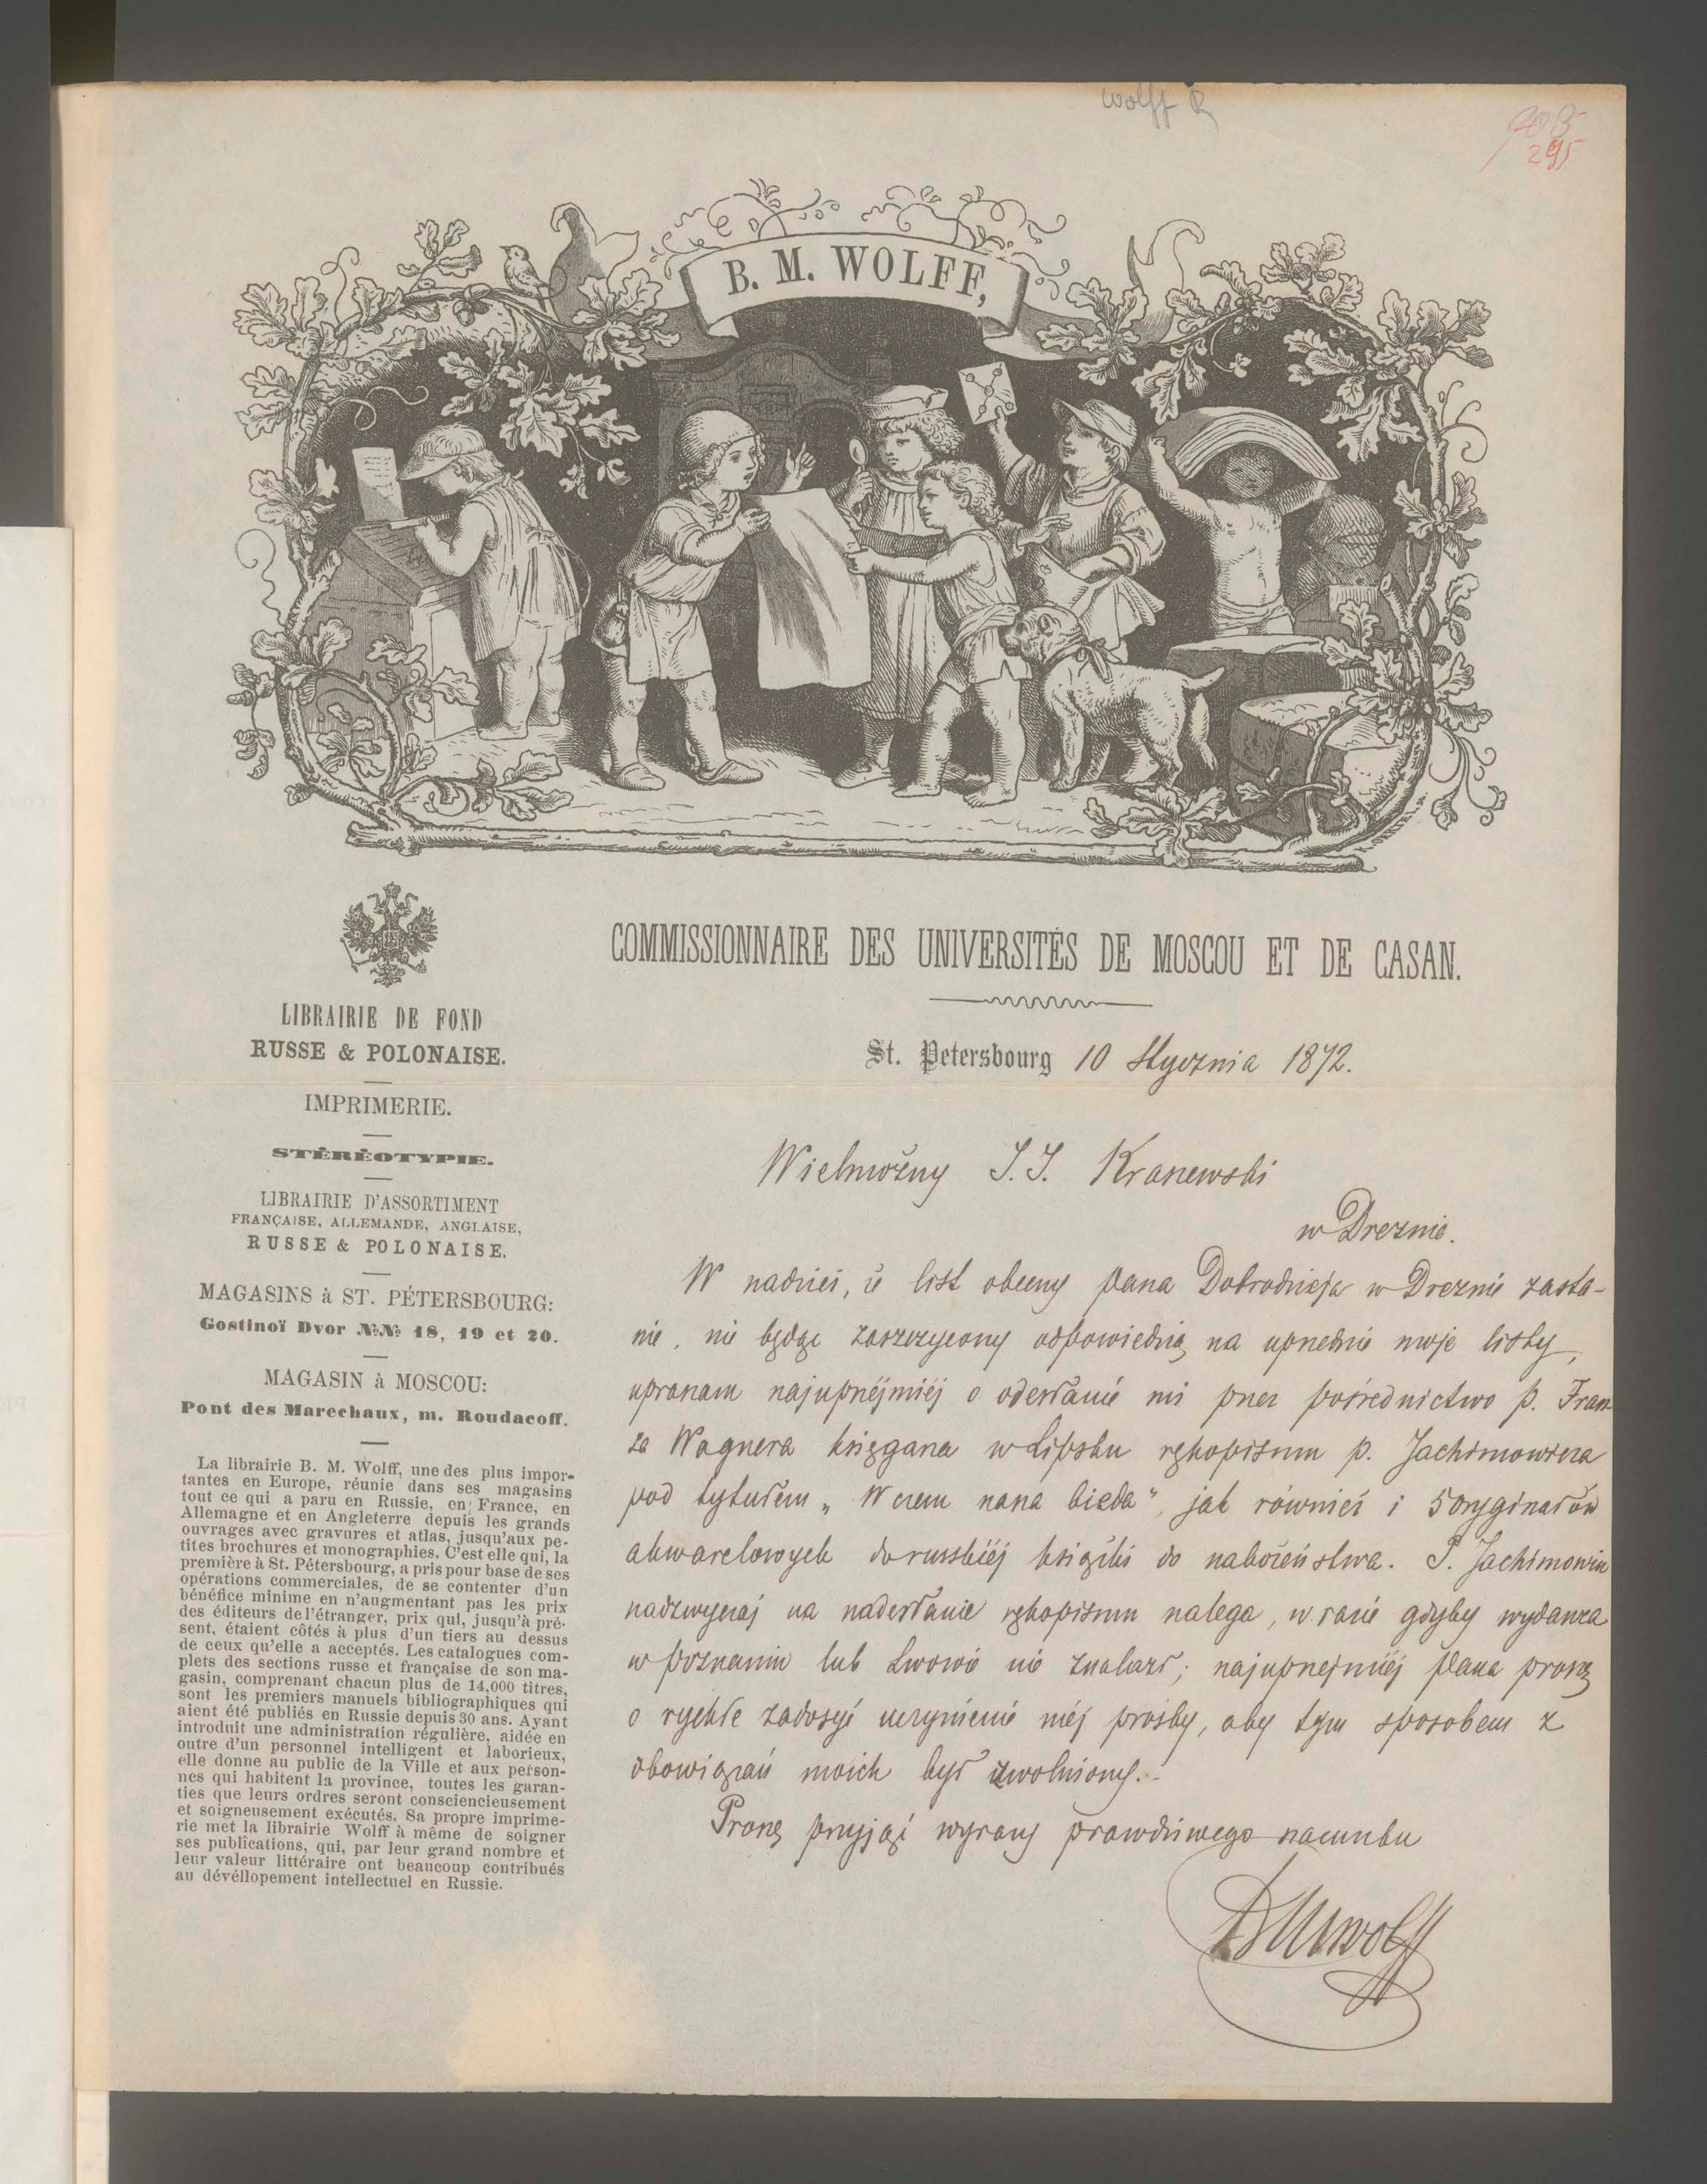 Wolff
905
295
B. M. WOLFF,
COMMISSIONNAIRE DES UNIVERSITÉS DE MOSCOU ET DE CASAN.
LIBRAIRIE DE FOND
RUSSE & POLONAISE.
IMPRIMERIE.
STÉRÉOTYPIE.
LIBRAIRIE D'ASSORTIMENT
FRANÇAISE, ALLEMANDE, ANGLAISE,
RUSSE & POLONAISE.
MAGASINS à ST. PÉTERSBOURG:
Gostinoï Dvor №№ 18, 19 et 20.
MAGASIN à MOSCOU:
Pont des Marechaux, m. Roudacoff.
La librairie B. M. Wolff, une des plus impor-
tantes en Europe, réunie dans ses magasins
tout ce qui a paru en Russie, en France, en
Allemagne et en Angleterre depuis les grands
ouvrages avec gravures et atlas, jusqu'aux pe-
tites brochures et monographies. C'est elle qui, la
première à St. Pétersbourg, a pris pour base de ses
opérations commerciales, de se contenter d'un
bénéfice minime en n'augmentant pas les prix
des éditeurs de l'étranger, prix qui, jusqu'à pré-
sent, étaient côtés à plus d'un tiers au dessus
de ceux qu'elle a acceptés. Les catalogues com-
plets des sections russe et française de son ma-
gasin, comprenant chacun plus de 14,000 titres,
sont les premiers manuels bibliographiques qui
aient été publiés en Russie depuis 30 ans. Ayant
introduit une administration régulière, aidée en
outre d'un personnel intelligent et laborieux,
elle donne au public de la Ville et aux person-
nes qui habitent la province, toutes les garan-
ties que leurs ordres seront consciencieusement
et soigneusement exécutés. Sa propre imprime-
rie met la librairie Wolff à même de soigner
ses publications, qui, par leur grand nombre et
leur valeur littéraire ont beaucoup contribués
au dévéllopement intellectuel en Russie.
St. Petersbourg 10 Stycznia 1872.
Wielmożny J. I. Kraszewski
w Dreznie.
W nadziei, iż list obecny Pana Dobrodzieja w Dreznie zasta-
nie, nie będąc zaszczycony odpowiedzią na uprzednie moje listy,
upraszam najuprzéjmiéj o odesłanie mi przez pośrednictwo p. Fran-
za Wagnera księgarza w Lipsku rękopismu p. Jachimowicza
pod tytułem „W czem nasza bieda", jak również i 5 oryginałów
akwarelowych do russkiéj książki do nabożeństwa. P. Jachimowicz
nadzwyczaj na nadesłanie rękopismu nalega, w razie gdyby wydawca
w Poznaniu lub Lwowie nie znalazł; najuprzejmiéj Pana proszę
o rychłe zadosyć uczynienie méj prośby, aby tym sposobem z
obowiązań moich być uwolniony.
Proszę przyjąć wyrazy prawdziwego szacunku
BMWolff